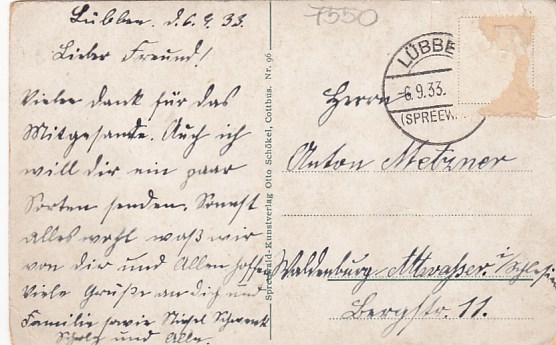 Lübben. d. 6.9.33.
Lieber Freund!
Vielen dank für das
Mitgesante. Auch ich
will dir ein paar
Sorten senden. Sonst
alles wohl waß wir
von dir und Allen hoffen
Viele Grüße an dich und
Familie sowie
Scholz und Alle.
Spreewald-Kunstverlag Otto Schökel, Cottbus. Nr. 96
7550
LÜBBE
6.9.33.
(SPREEW.
Herrn
Anton Metzner
Waldenburg Altwasser i/Schlesien
Bergstr. 11.